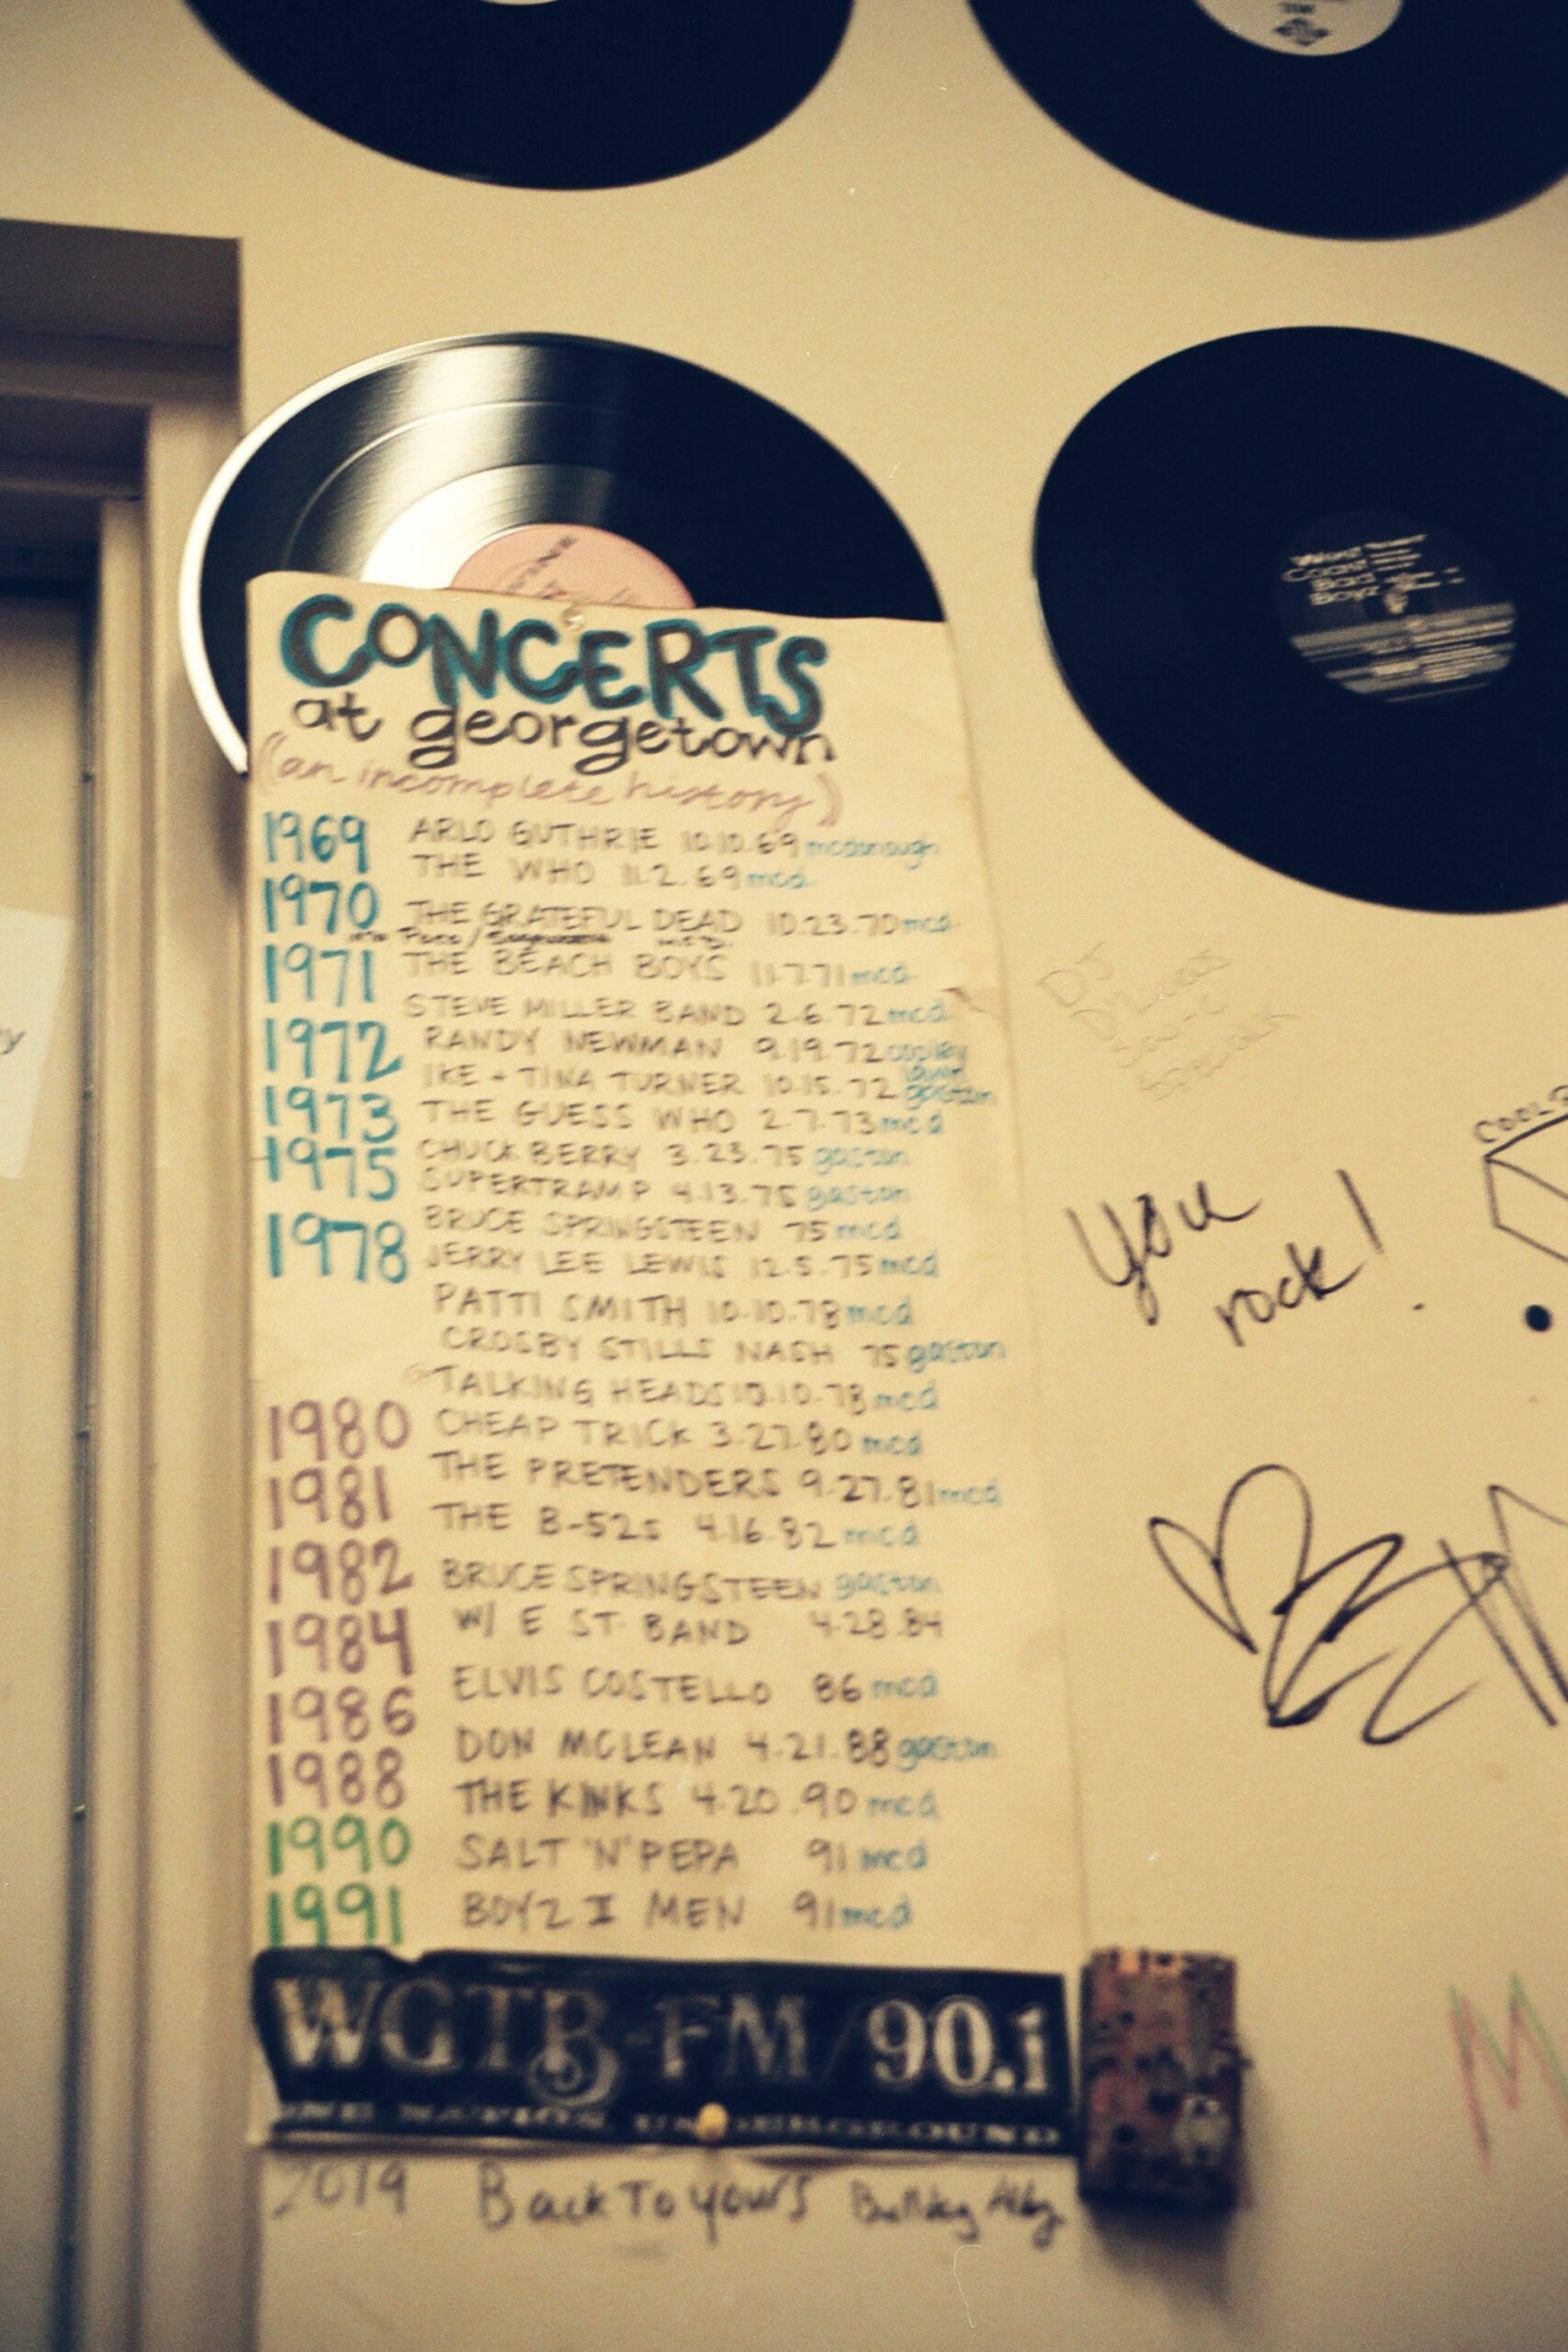 CONCERTS
at georgetown
(an incomplete history)
1969 ARLO GUTHRIE 10.10.69 mcdonough
THE WHO 11.2.69 mcd
1970 THE GRATEFUL DEAD 10.23.70 mcd
1971 THE BEACH BOYS 11.7.71 mcd
STEVE MILLER BAND 2.6.72 mcd
1972 RANDY NEWMAN 9.19.72 copley lawn
IKE + TINA TURNER 10.15.72 gaston
1973 THE GUESS WHO 2.7.73 mcd
1975 CHUCK BERRY 3.23.75 gaston
SUPERTRAMP 4.13.75 gaston
1978 BRUCE SPRINGSTEEN 75 mcd
JERRY LEE LEWIS 12.5.75 mcd
PATTI SMITH 10.10.78 mcd
CROSBY STILLS NASH 75 gaston
TALKING HEADS 10.10.78 mcd
1980 CHEAP TRICK 3.27.80 mcd
1981 THE PRETENDERS 9.27.81 mcd
THE B-52s 4.16.82 mcd
1982 BRUCE SPRINGSTEEN gaston
1984 W/ E ST. BAND 4.28.84
1986 ELVIS COSTELLO 86 mcd
1988 DON MCLEAN 4.21.88 gaston
THE KINKS 4.20.90 mcd
1990 SALT 'N' PEPA 91 mcd
1991 BOYZ II MEN 91 mcd
WGTB-FM/90.1
ONE NATION, UNDERGROUND
2019 Back To Yours Bulldog Alley
West Coast Bad Boyz
DJ
you
rock!
M